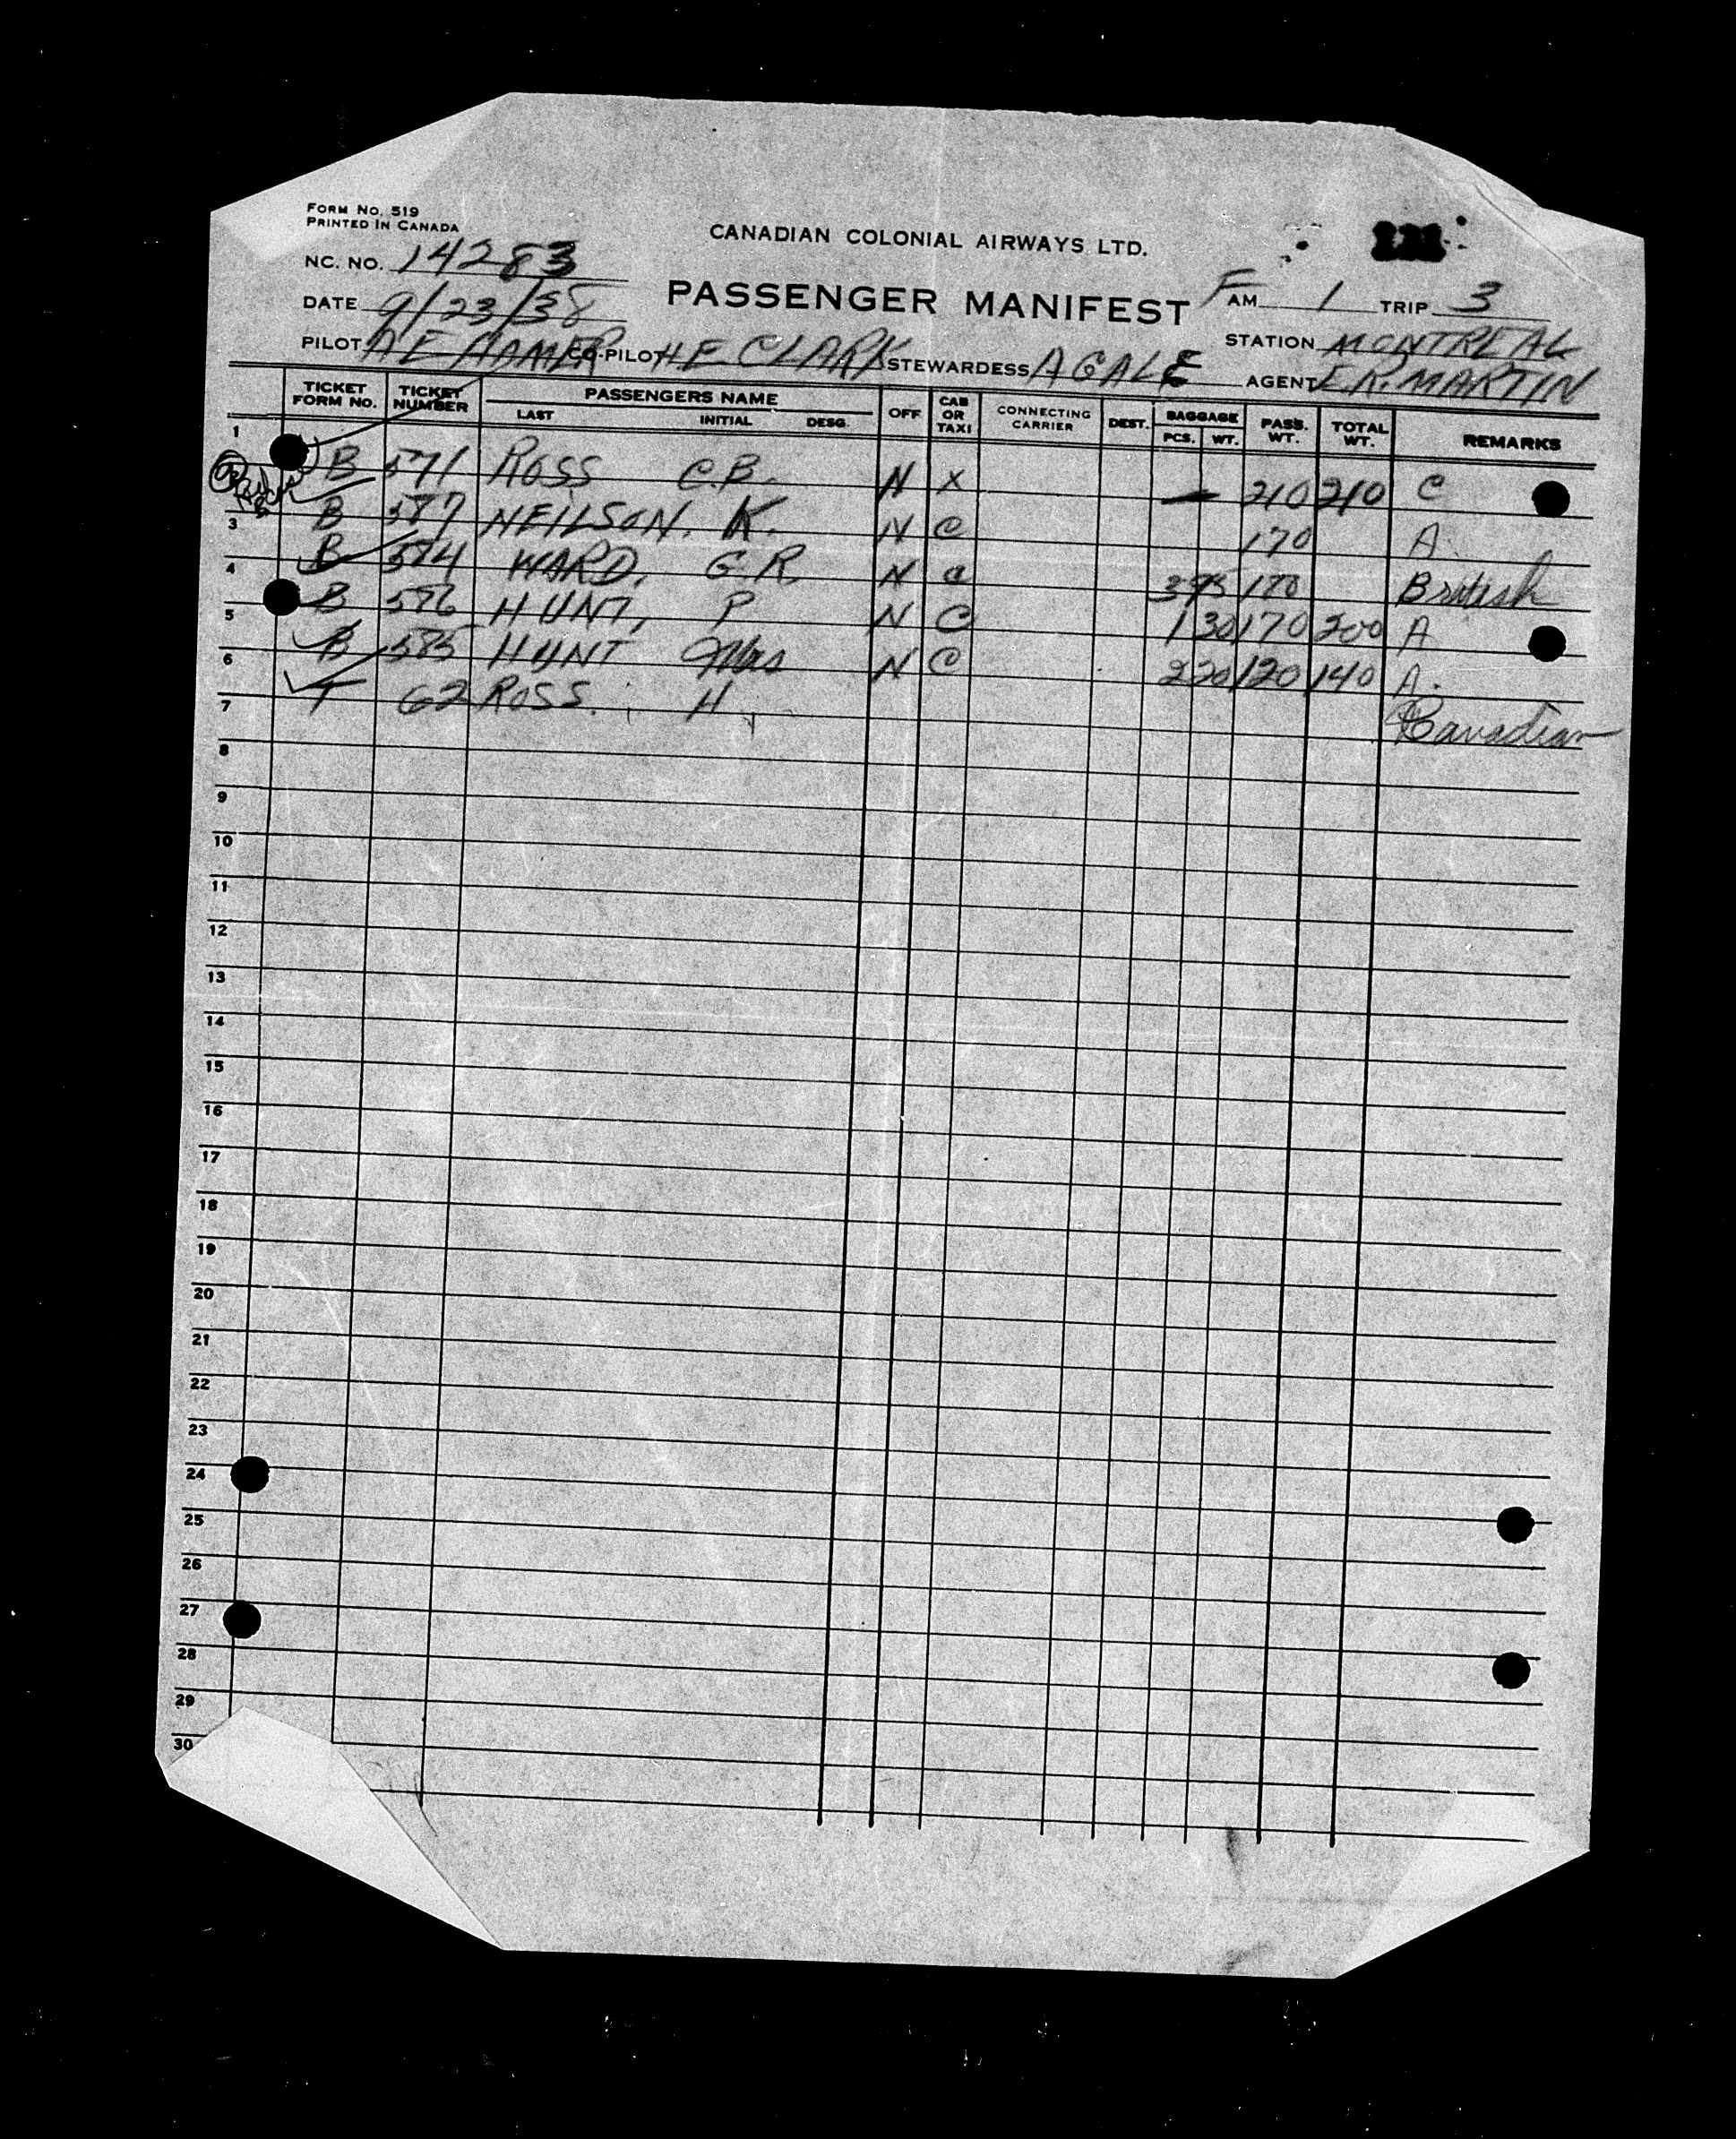 FORM NO. 519
PRINTED IN CANADA
CANADIAN COLONIAL AIRWAYS LTD.
NC. NO. 14283
DATE 9/23/38 PASSENGER MANIFEST FAM 1 TRIP 3
STATION MONTREAL
PILOT A E HAMER CO-PILOT H E CLARK STEWARDESS A GALE AGENT E.R. MARTIN
TICKET FORM NO. TICKET NUMBER PASSENGERS NAME LAST INITIAL DESG. OFF CAB OR TAXI CONNECTING CARRIER DEST. BAGGAGE PCS. WT. PASS. WT. TOTAL WT. REMARKS
1
B 571 ROSS C.B. N X — 210 210 C
3 B 587 NEILSON, K. N C 170 A
4 B 584 WARD, G.R. N C 3 95 170 British
5 B 586 HUNT, P N C 1 30 170 200 A
6 B 585 HUNT Mrs N C 2 20 120 140 A.
7 T 62 ROSS. H Canadian
8
9
10
11
12
13
14
15
16
17
18
19
20
21
22
23
24
25
26
27
28
29
30